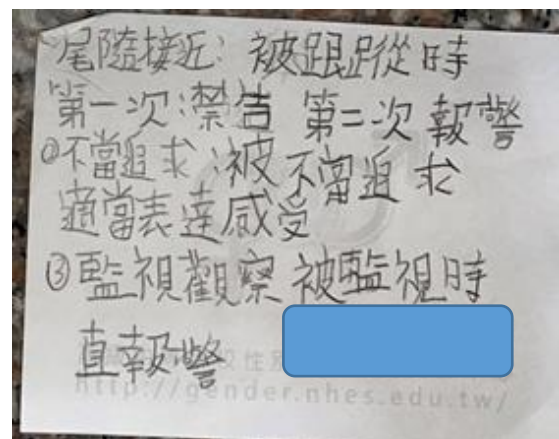 尾隨接近:被跟蹤時
第一次:禁告 第二次報警
②不當追求:被不當追求
適當表達感受
③監視觀察被監視時
直報警
http://gender.nhes.edu.tw/